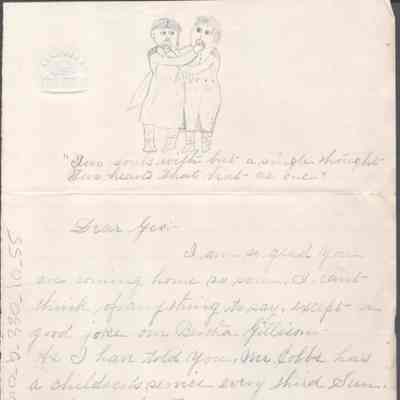 "Two souls with but a single thought
Two hearts that beat as one."
Dear Geo-
I am so glad you
are coming home so soon. I can't
think of anything to say, except a
good joke on
As I have told you, Mr Cobbs has
a children's service every third Sun.